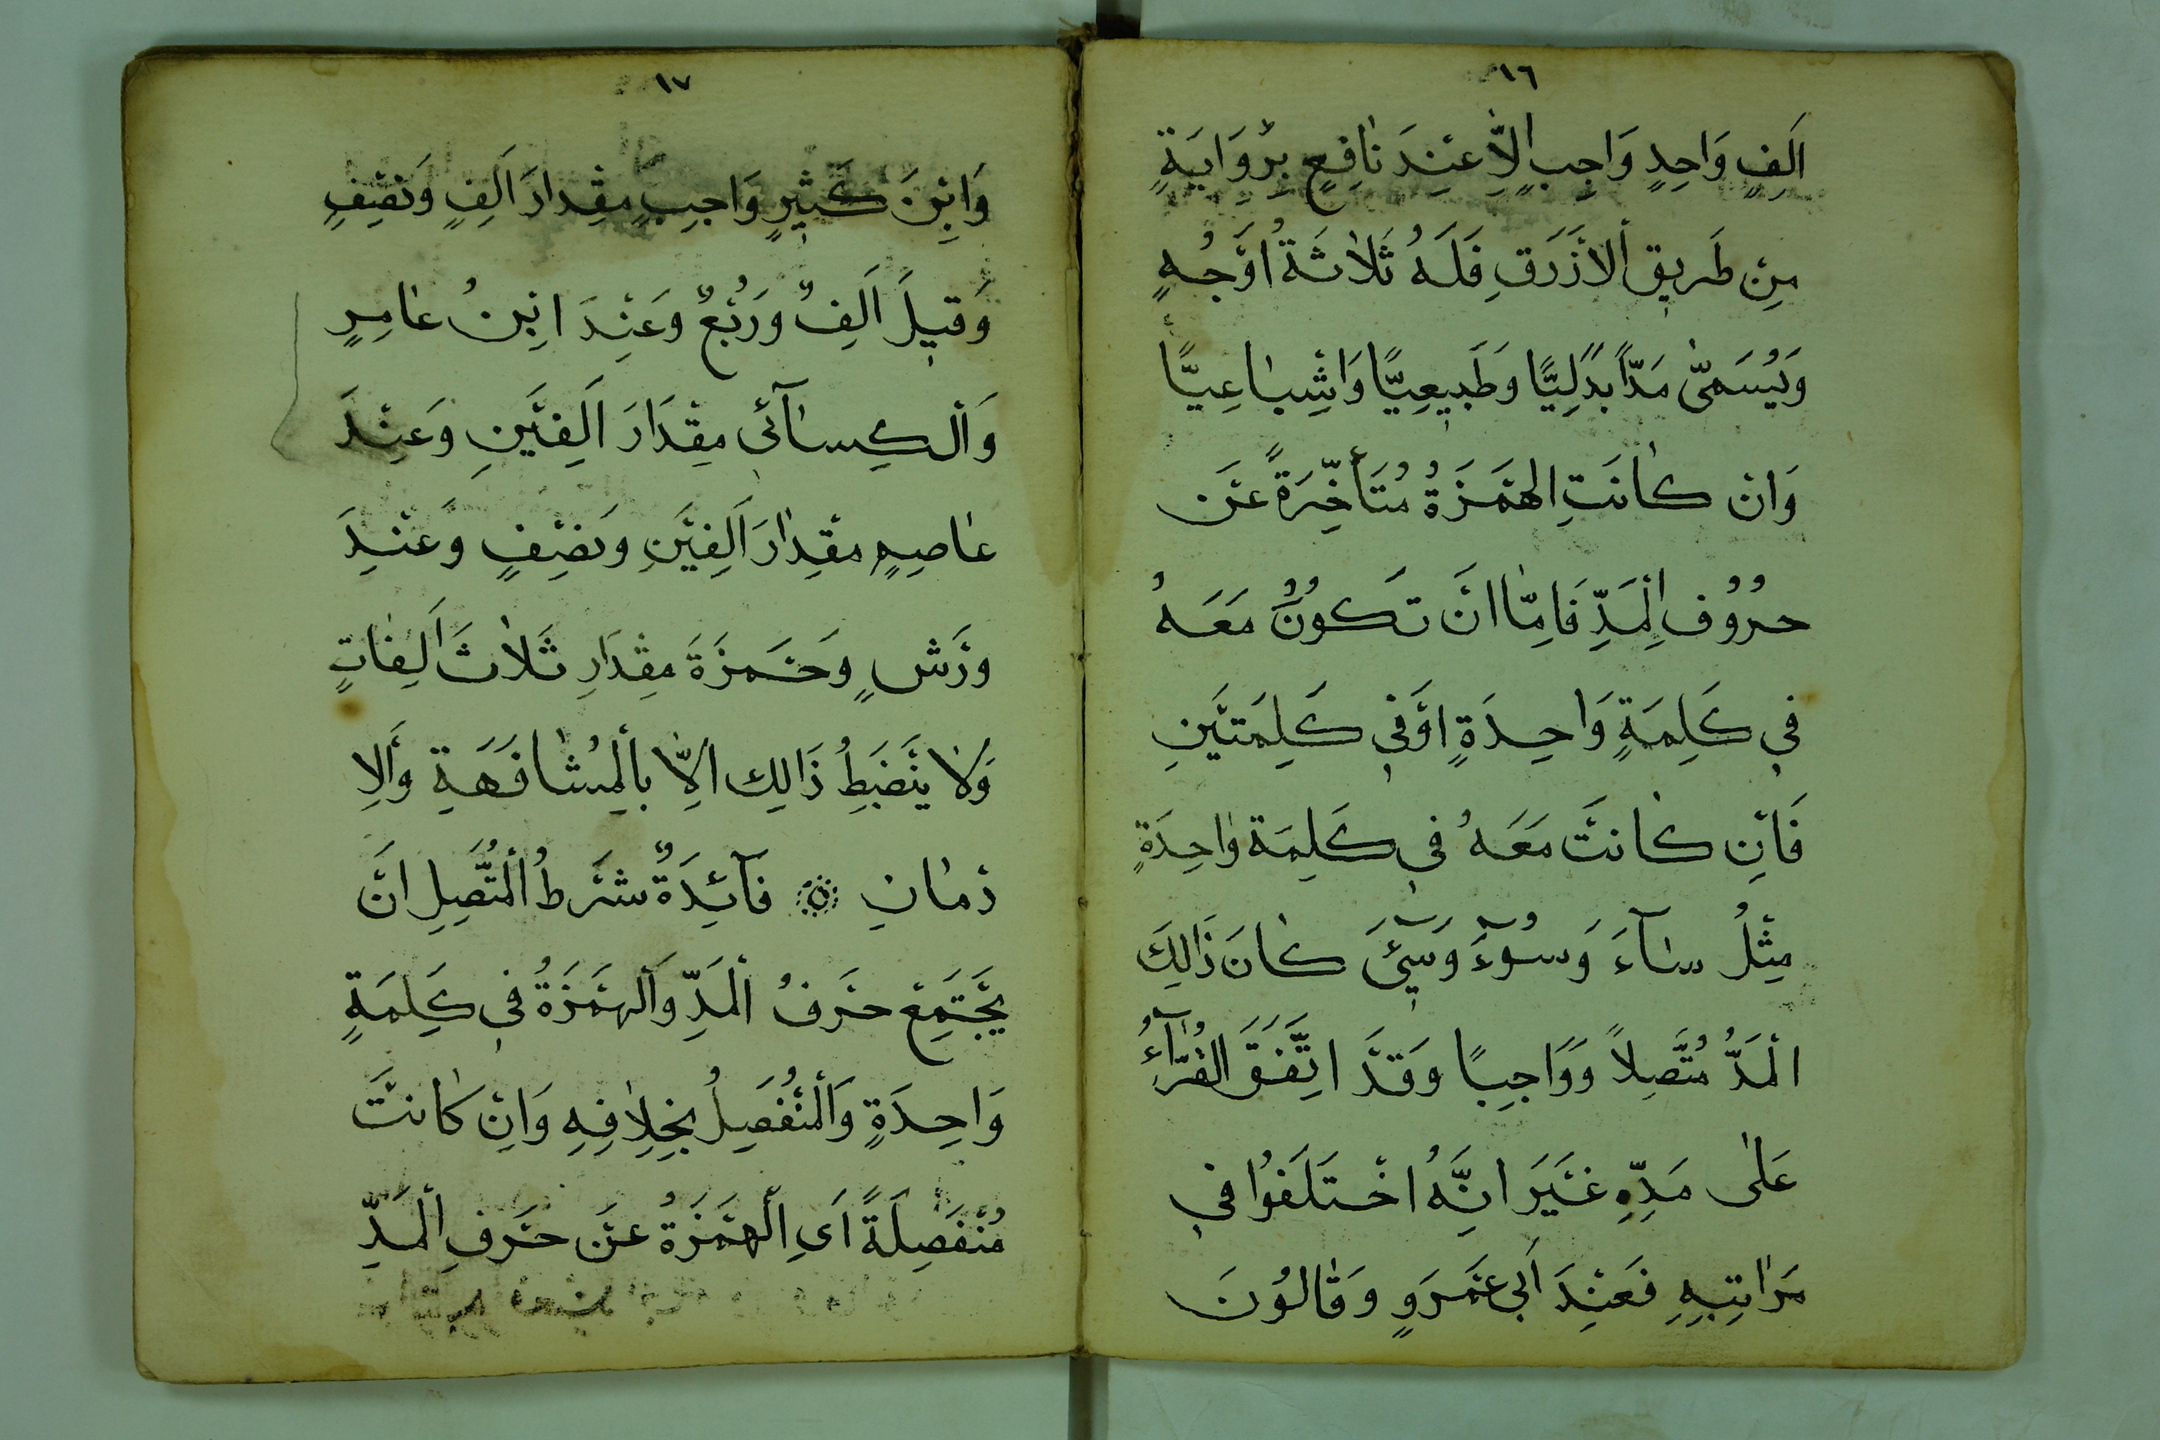 ١٦
اَلِفٍ وَاحِدٍ وَاجِبٍ اِلَّا عِنْدَ نَافِعٍ بِرْوَايَةٍ
مِنْ طَرِيقِ اْلاَزْرَقِ فَلَهُ ثَلاَثَةُ اَوْجُهٍ
وَيُسَمّٰى مَدًّا بَدَلِيًّا وَطَبِيعِيًّا وَاِشْبَاعِيًّا
وَاِنْ كَانَتِ الهَمْزَةُ مُتَأَخِّرَةً عَنْ
حُرُوُفِ اْلمَدِّ فَاِمَّا اَنْ تَكُونَ مَعَهُ
فِي كَلِمَةٍ وَاحِدَةٍ اَوْ فِي كَلِمَتَيْنِ
فَاِنْ كَانَتْ مَعَهُ فِي كَلِمَةٍ وَاحِدَةٍ
مِثْلُ سَآءَ وَسُوۤءَ وَسِيۤئَ كَانَ ذَالِكَ
الْمَدُّ مُتَّصِلاً وَوَاجِبًا وَقَدْ اتَّفَقَ القُرَّآءُ
عَلٰى مَدِّهِ غَيْرَ اَنَّهُ اخْتَلَفُوا فِي
مَرَاتِبِهِ فَعِنْدَ اَبِي عَمْرٍو وَقَالُونَ
١٧
وَابْنَ كَثِيْرٍ وَاجِبٍ مِقْدَارَ اَلِفٍ وَنِصْفٍ
وَقِيلَ اَلِفٌ وَرُبْعٌ وَعِنْدَ ابْنُ عَامِرٍ
وَاْلكِسَآئِي مِقْدَارَ اَلِفَيْنِ وَعِنْدَ
عَاصِمٍ مِقْدَارَ اَلِفَيْنِ وَنِصْفٍ وَعِنْدَ
وَرْشٍ وَحَمْزَةَ مِقْدَارِ ثَلاَثَ اَلِفَاتٍ
وَلاَ يَنْضَبِطُ ذَالِكَ اِلاَّ بِاْلمُشَافَهَةِ وَاْلاِ
دْمَانِ ۞ فَآئِدَةٌ شَرْطُ اْلمُتَّصِلِ اَنْ
يَجْتَمِعَ حَرْفُ اْلمَدِّ وَاْلهَمْزَةُ فِي كَلِمَةٍ
وَاحِدَةٍ وَاْلمُنْفَصِلُ بِخِلاَفِهِ وَاِنْ كَانَتْ
مُنْفَصِلَةً اَيِ اْلهَمْزَةُ عَنْ حَرْفِ اْلمَدِّ